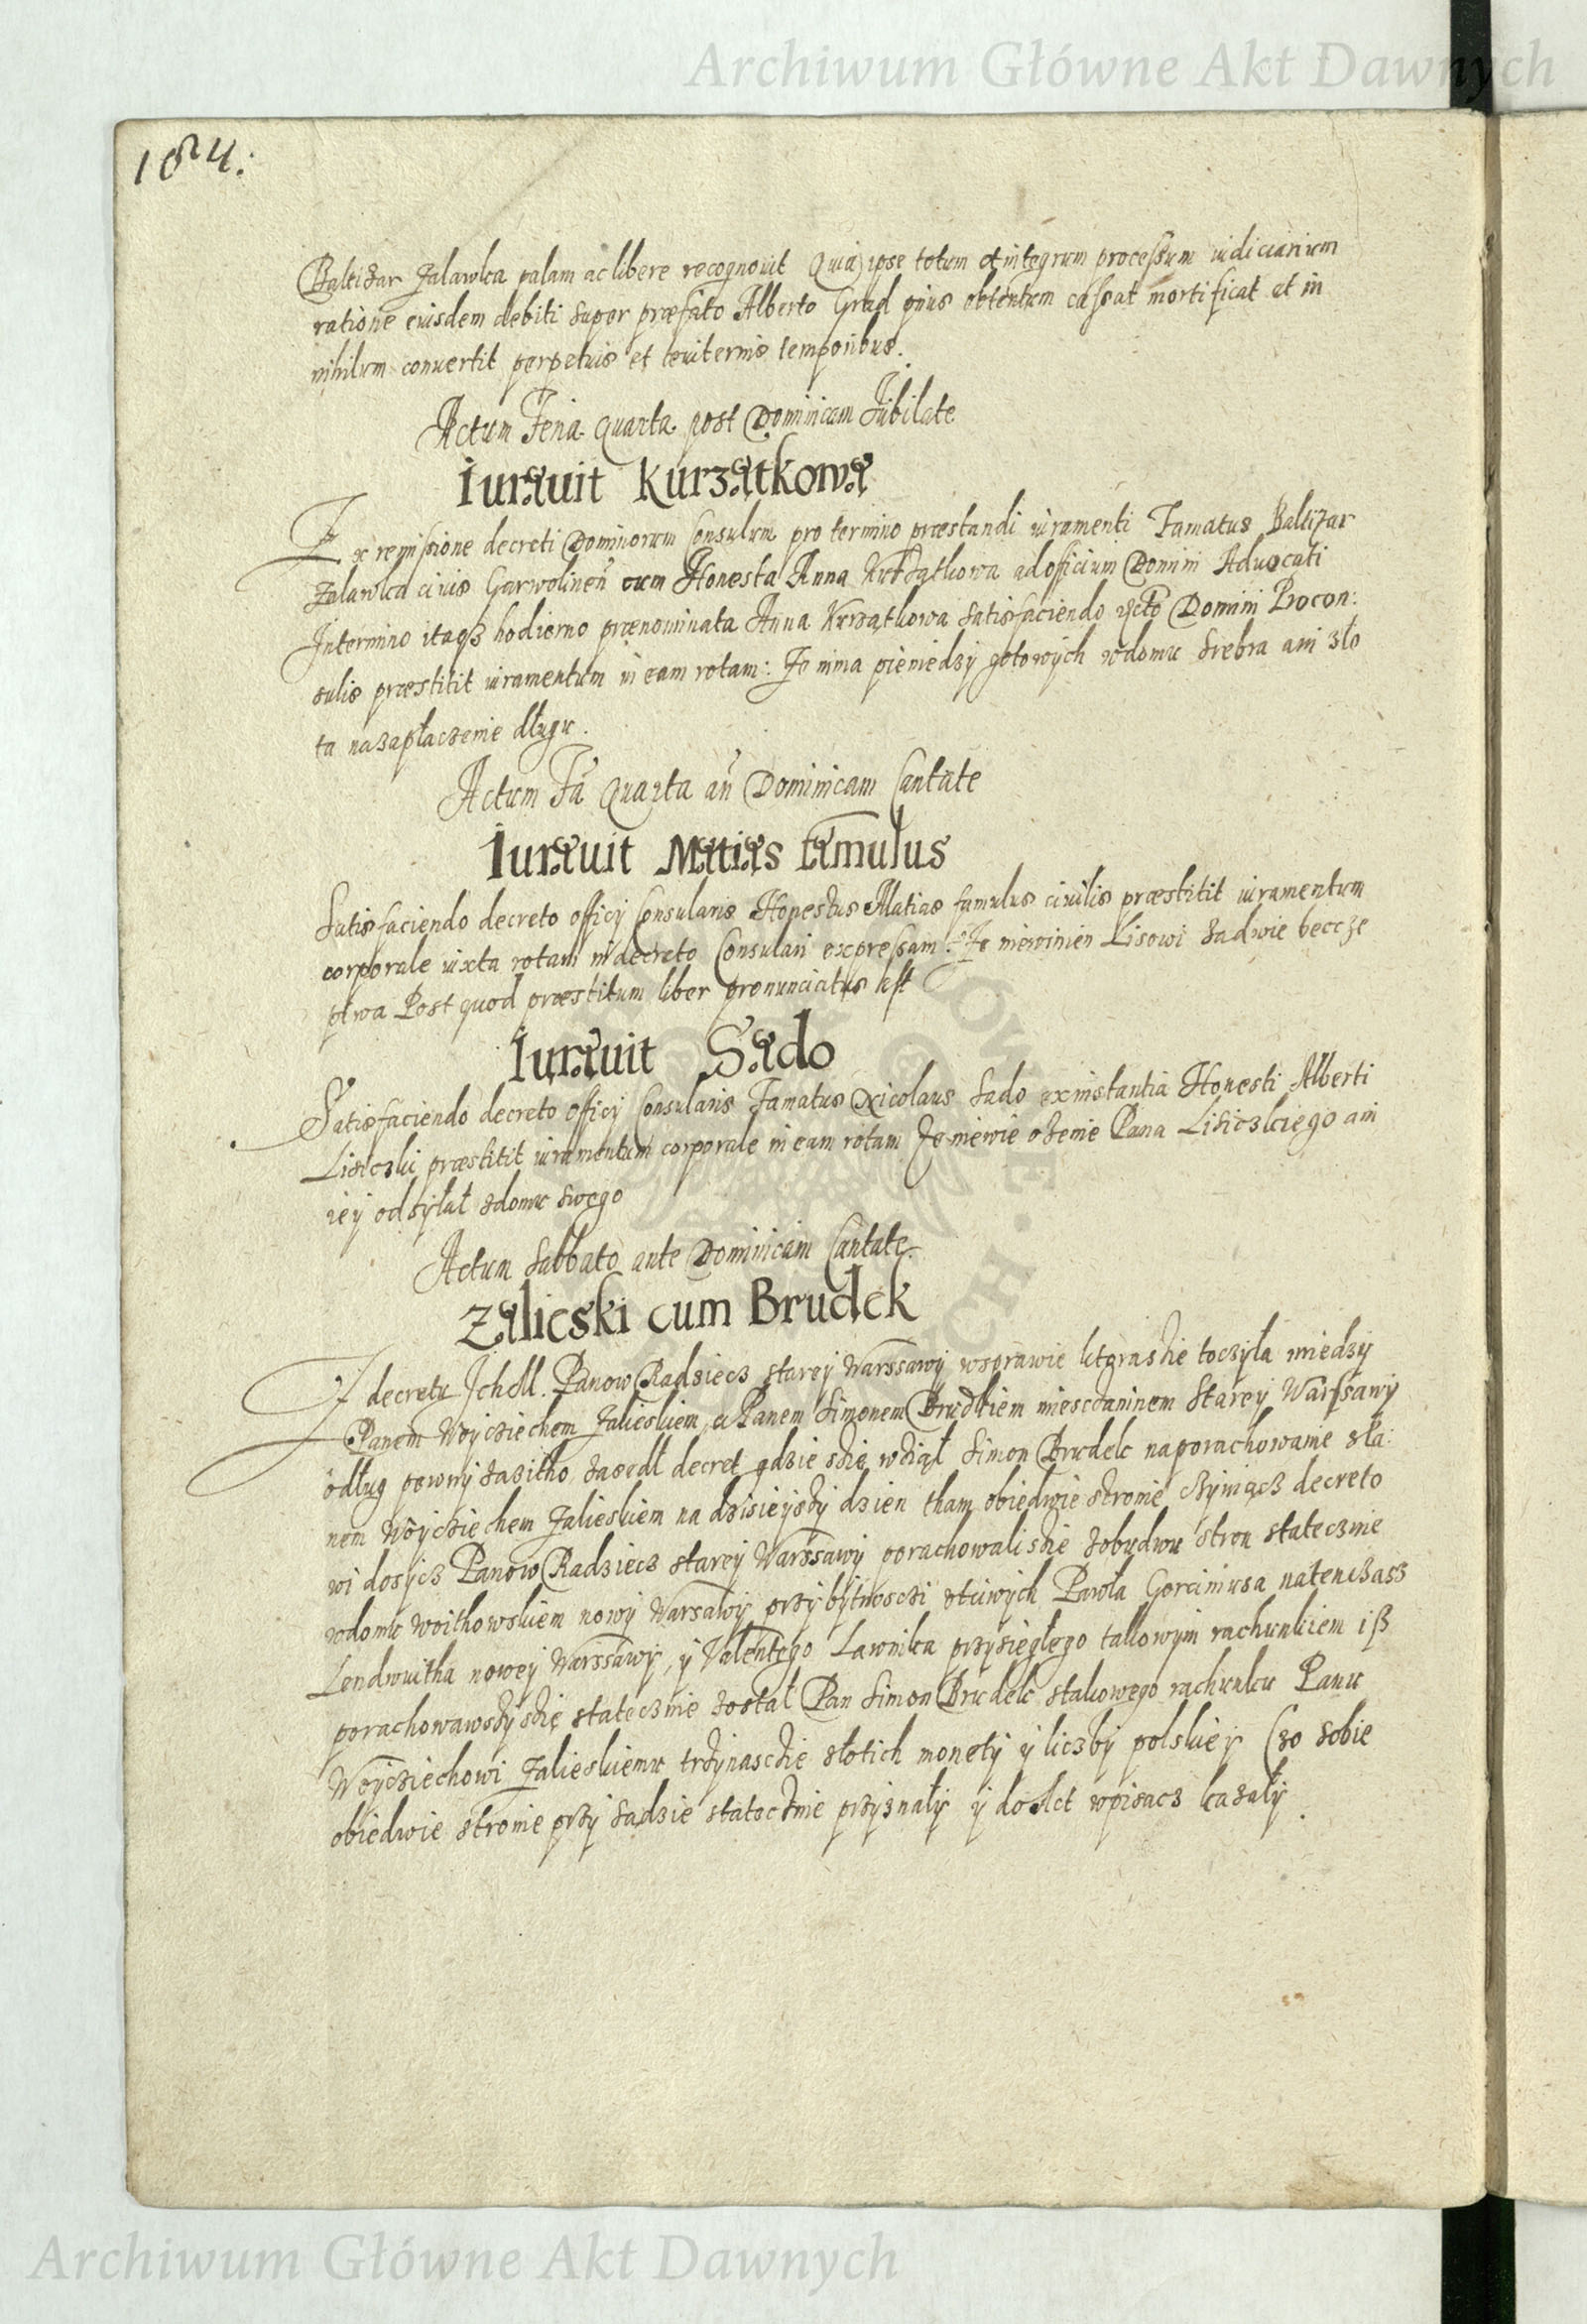 Archiwum Główne Akt Dawnych
184.
Baltizar Zalawka palam ac libere recognouit Quia ipse totum et integrum processum iudiciarium
ratione eiusdem debiti super præfato Alberto Grad prius obtentum cassat mortificat et in
nihilum conuertit perpetuis et æuiternis temporibus.
Actum Feria Quarta post Dominicam Jubilate
Iurauit Kurzątkowa
Ex remissione decreti Dominorum Consulum pro termino præstandi iuramenti Famatus Baltizar
Zalawka ciuis Garwolinen cum Honesta Anna Kurzątkowa ad officium Domini Aduocati
In termino itaqз hodierno prænominata Anna Kurzątkowa satisfaciendo Domini Procon:
sulis præstitit iuramentum in eam rotam: Je nima pieniedzy gotowych w domu srebra ani zło
ta na zapłaczenie długu.
Actum Fa Quarta an Dominicam Cantate
Iurauit Matias famulus
Satisfaciendo decreto officij Consularis Honestus Matias famulus ciuilis præstitit iuramentum
corporale iuxta rotam in decreto Consulari expressam: Je niewinien Lisowi za dwie beczze
piwa Post quod præstitum liber pronunciatus est
Iurauit Sado
Satisfaciendo decreto officij Consularis Famatus Nicolaus Sado ex instantia Honesti Alberti
Lisiczki præstitit iuramentum corporale in eam rotam Je niewie o zenie Pana Lisiczkiego ani
iey odsyłał z domu swego
Actum Sabbato ante Dominicam Cantate.
Zalieski cum Brudek
Z decretu Ich M. Panow Radziecz starey Warssawy w sprawie ktora sie toczyla miedzy
Panem Woyciechem Zalieskiem, a Panem Simonem Brudkiem miesczaninem Starey Warssawy
o dług pewny zaszitho zasedł decret gdzie sie wziął Simon Brudek na porachowanie z Pa:
nem Woyciechem Zalieskiem na dzisieyszy dzien tham obiedwie stronie czyniącz decreto
wi dosycz Panow Radziecz starey Warssawy porachowali sie z obudwu stron statecznie
w domu Woithowskiem nowy Warsawy przy bytnosczi vcciwych Pawła Gorcimusa natenczasz
Lendwuitha nowey Warssawy, y Valentego Lawnika przysiegłego takowym rachunkiem iß
porachowawszy sie statecznie został Pan Simon Brudek z takowego rachunku Panu
Woyciechowi Zalieskiemu trzynasczie złotich monety y liczby polskiey Czo sobie
obiedwie stronie przy sądzie statecznie przyznały y do Act wpisacz kazały.
Archiwum Główne Akt Dawnych